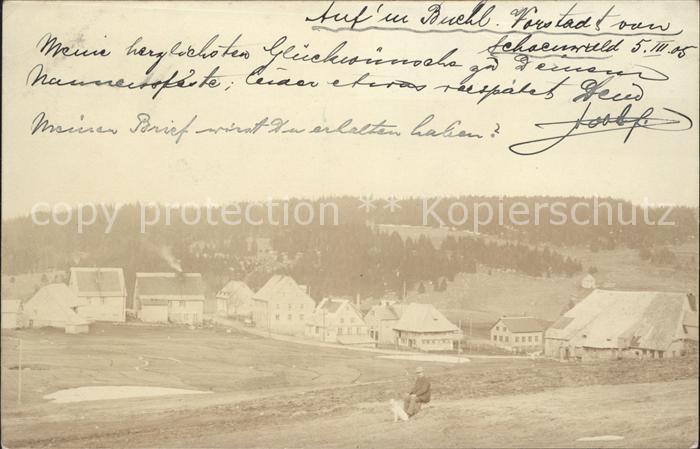 Auf'm Buchl. Vorstadt von
Schoenwald 5.III.05
Meine herzlichsten Glückwünsche zu Deinem
Namensfeste; leider etwas verspätet Dein
Meinen Brief wirst Du erhalten haben?
copy protection ** Kopierschutz